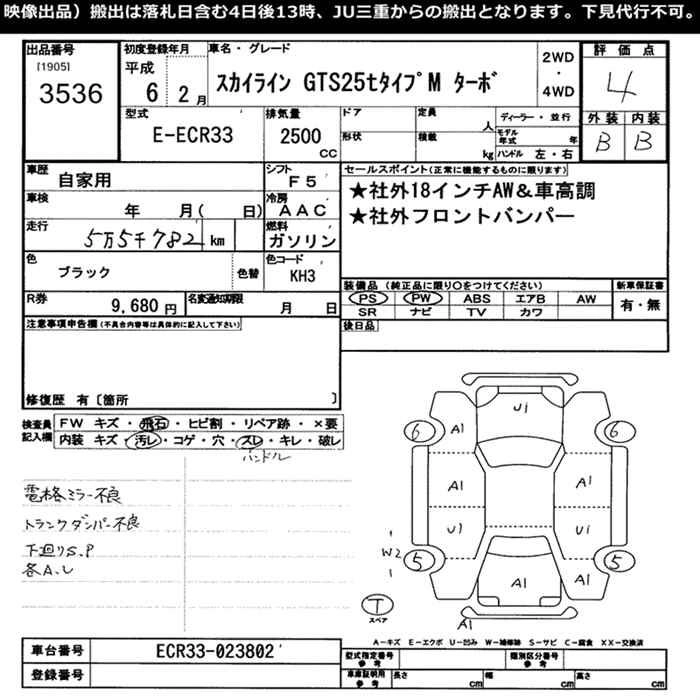 映像出品）搬出は落札日含む4日後13時、JU三重からの搬出となります。下見代行不可。
出品番号 初度登録年月 車名・グレード 2WD・4WD 評価点
[1905] 平成
3536 6 2月 スカイライン GTS25tタイプM ターボ 4
型式 排気量 ドア 定員 人 ディーラー・並行 外装 内装
E-ECR33 2500 CC 形状 積載 kg モデル年式 年 B B
ハンドル 左・右
車歴 自家用 シフト F5 セールスポイント(正常に機能するものに限ります)
車検 年 月( 日) 冷房 AAC ★社外18インチAW&車高調
走行 5万5千782 km 燃料 ガソリン ★社外フロントバンパー
色 ブラック 色替 色コード KH3
装備品 (純正品に限り○をつけてください) 新車保証書
R券 9,680円 名変通知期限 月 日 PS PW ABS エアB AW 有・無
SR ナビ TV カワ
注意事項申告欄(不具合内容等は具体的に記入して下さい) 後日品
修復歴 有〔箇所 〕
検査員記入欄 FW キズ・飛石・ヒビ割・リペア跡・×要
内装 キズ・汚レ・コゲ・穴・スレ・キレ・破レ
ハンドル
電格ミラー不良
トランクダンパー不良
下廻りS.P
各A.U
Ui
6 A1 6
A1 A1
U1 Ui
W2
5 A1 A1 5
T
スペア
A1
A-キズ E-エクボ U-凹み W-補修跡 S-サビ C-腐食 XX-交換済
車台番号 ECR33-023802 型式指定番号 参考 類別区分番号 参考
登録番号 車庫証明用 参考 長さ cm 幅 cm 高さ cm